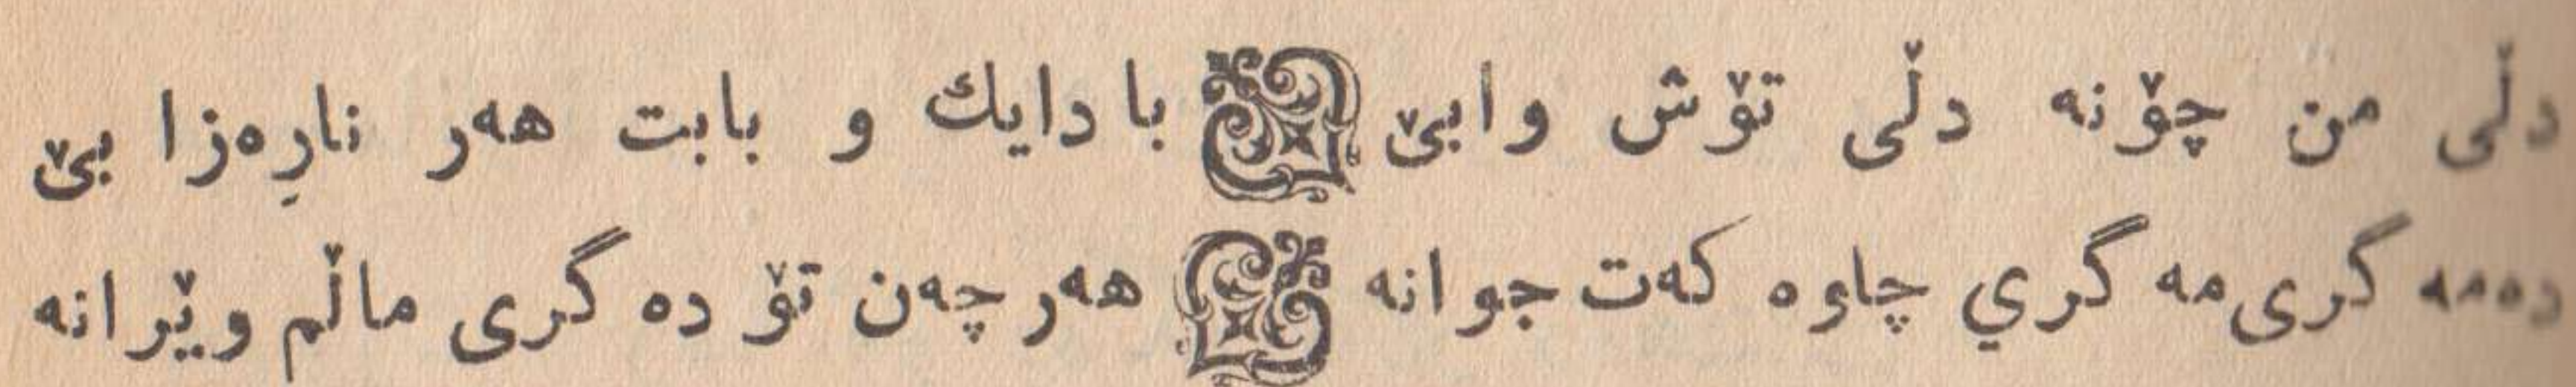 دڵی من چۆنه دڵی تۆش وابێ با دایك و بابت هەر نارِەزا بێ
دەمه گری مه گري چاوە كەت جوانه هەرچەن تۆ دە گری ماڵم وێرانه